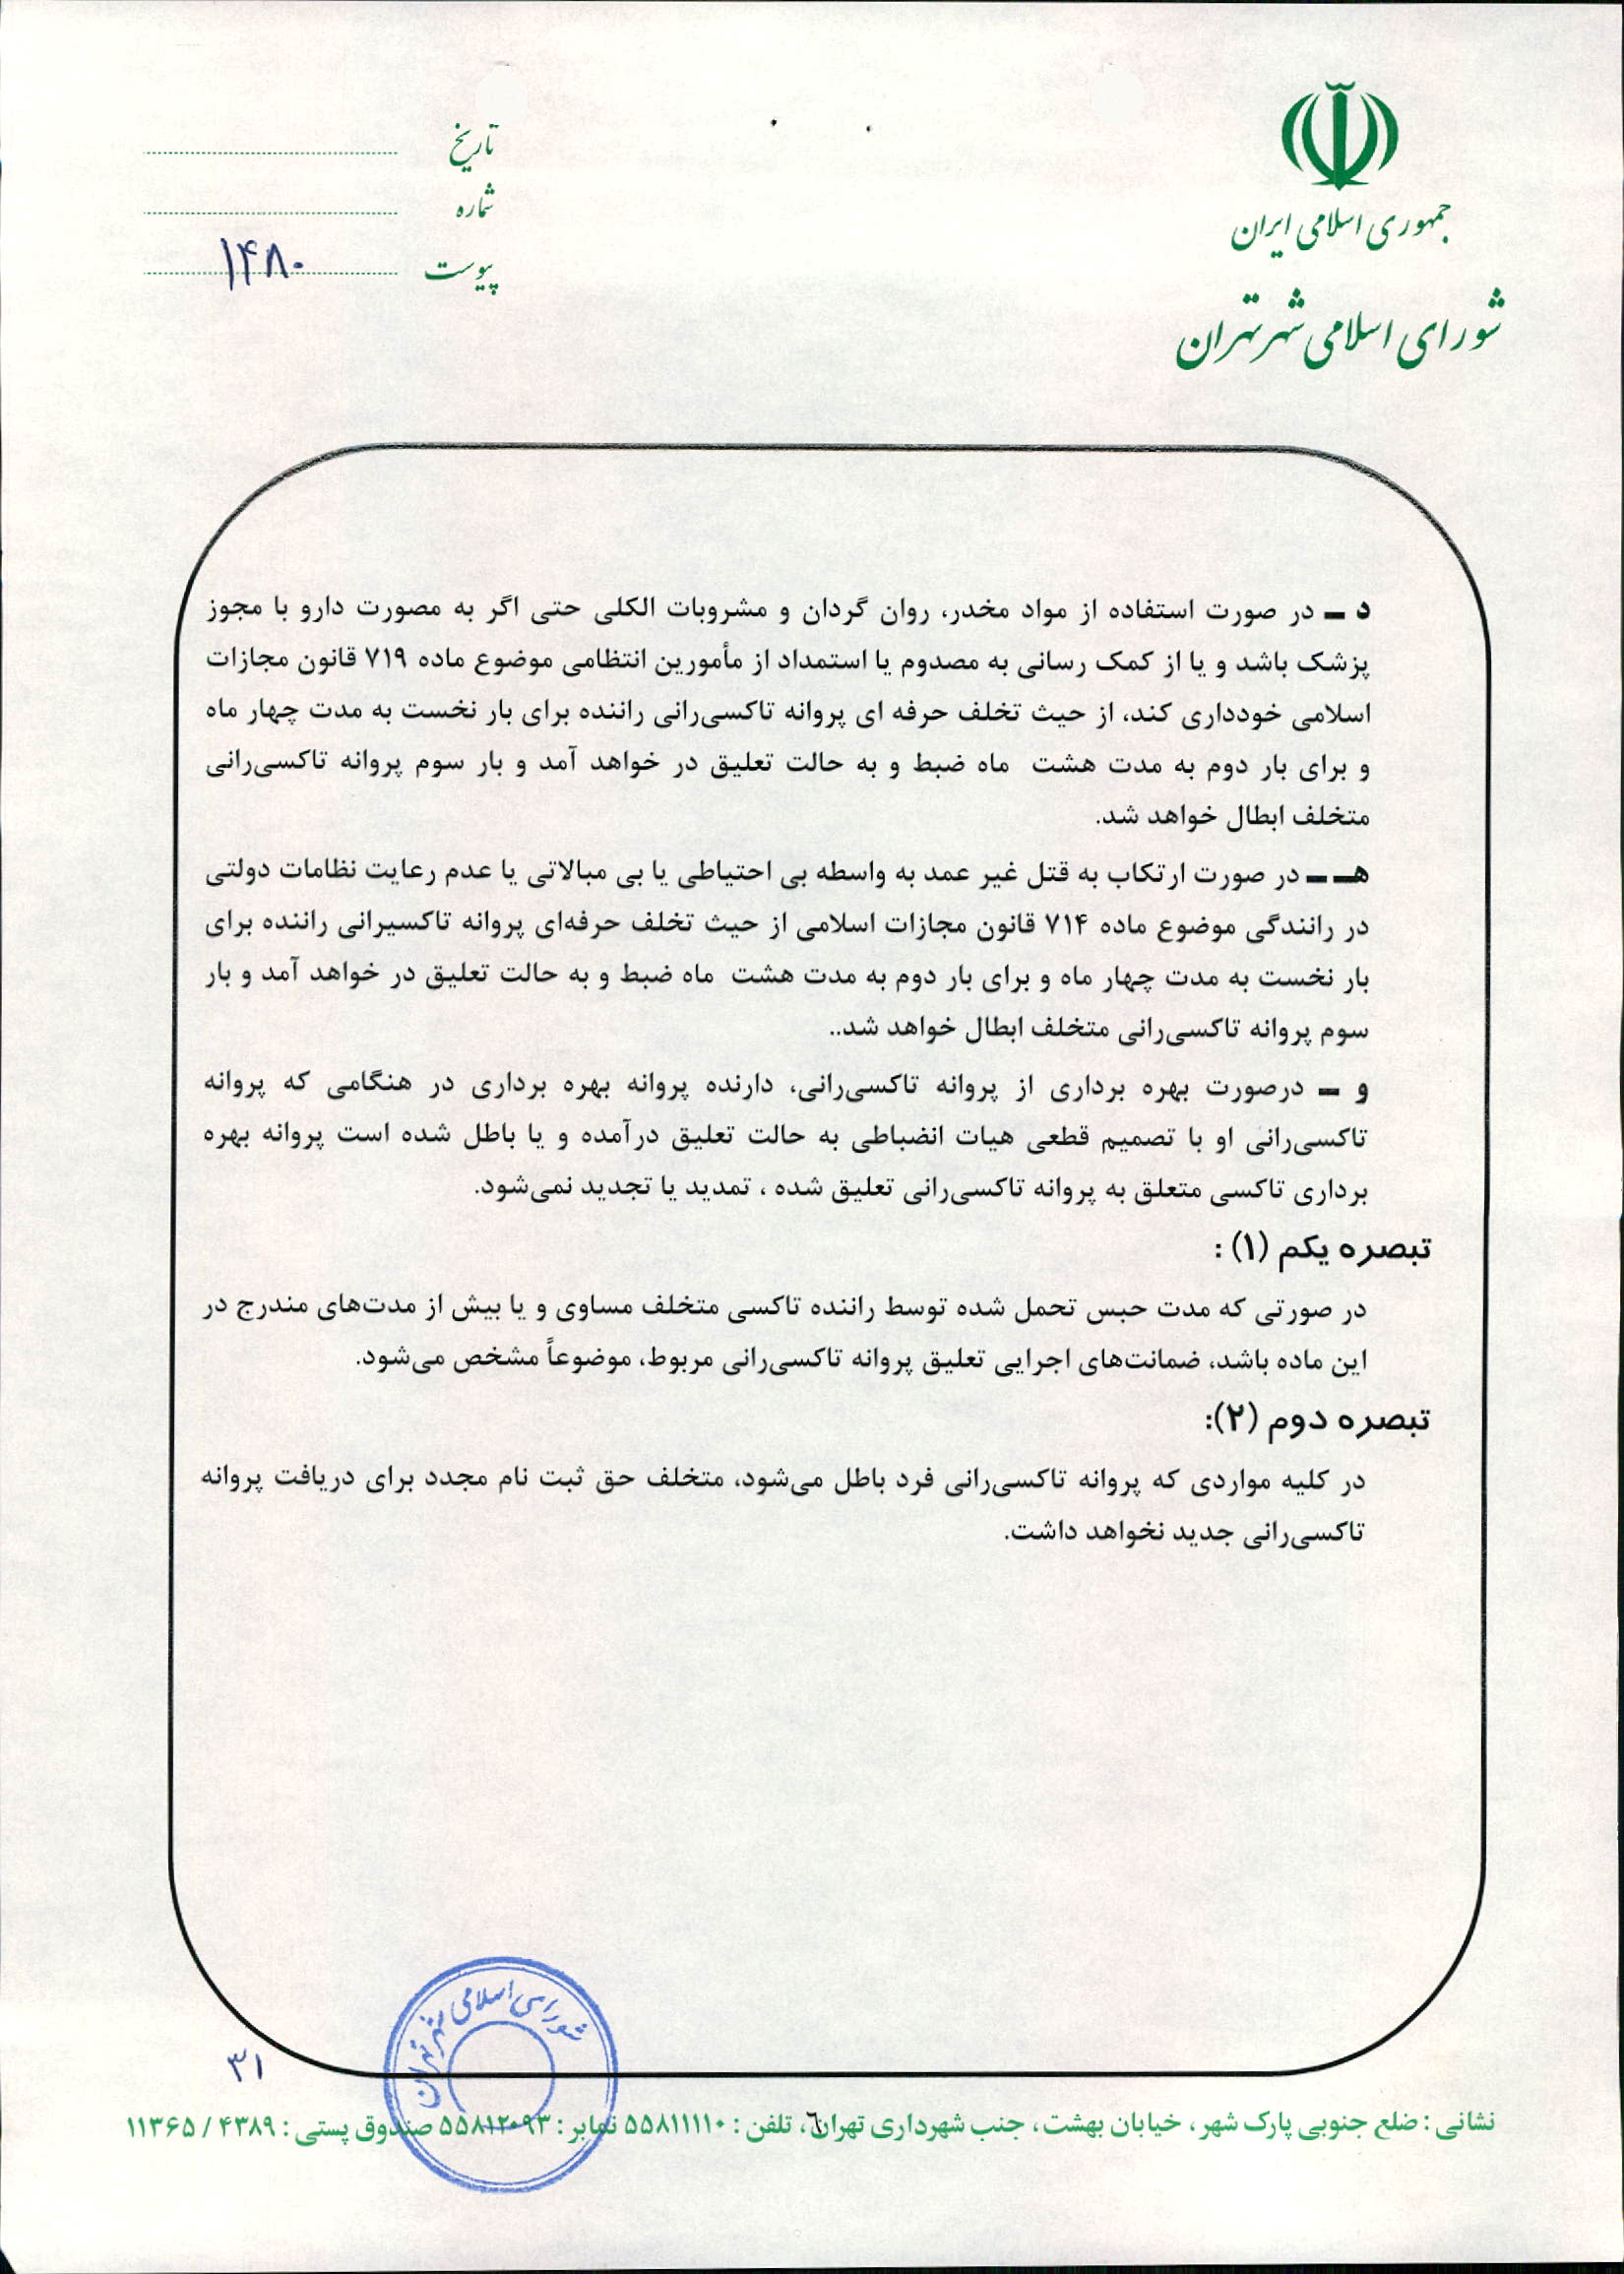 جمهوری اسلامی ایران
شورای اسلامی شهر تهران
تاریخ
شماره
پیوست ۱۴۸۰
د ـ در صورت استفاده از مواد مخدر، روان گردان و مشروبات الکلی حتی اگر به مصورت دارو با مجوز
پزشک باشد و یا از کمک رسانی به مصدوم یا استمداد از مأمورین انتظامی موضوع ماده ۷۱۹ قانون مجازات
اسلامی خودداری کند، از حیث تخلف حرفه ای پروانه تاکسی‌رانی راننده برای بار نخست به مدت چهار ماه
و برای بار دوم به مدت هشت ماه ضبط و به حالت تعلیق در خواهد آمد و بار سوم پروانه تاکسی‌رانی
متخلف ابطال خواهد شد.
هـ ـ در صورت ارتکاب به قتل غیر عمد به واسطه بی احتیاطی یا بی مبالاتی یا عدم رعایت نظامات دولتی
در رانندگی موضوع ماده ۷۱۴ قانون مجازات اسلامی از حیث تخلف حرفه‌ای پروانه تاکسیرانی راننده برای
بار نخست به مدت چهار ماه و برای بار دوم به مدت هشت ماه ضبط و به حالت تعلیق در خواهد آمد و بار
سوم پروانه تاکسی‌رانی متخلف ابطال خواهد شد..
و ـ درصورت بهره برداری از پروانه تاکسی‌رانی، دارنده پروانه بهره برداری در هنگامی که پروانه
تاکسی‌رانی او با تصمیم قطعی هیات انضباطی به حالت تعلیق درآمده و یا باطل شده است پروانه بهره
برداری تاکسی متعلق به پروانه تاکسی‌رانی تعلیق شده ، تمدید یا تجدید نمی‌شود.
تبصره یکم (۱) :
در صورتی که مدت حبس تحمل شده توسط راننده تاکسی متخلف مساوی و یا بیش از مدت‌های مندرج در
این ماده باشد، ضمانت‌های اجرایی تعلیق پروانه تاکسی‌رانی مربوط، موضوعاً مشخص می‌شود.
تبصره دوم (۲):
در کلیه مواردی که پروانه تاکسی‌رانی فرد باطل می‌شود، متخلف حق ثبت نام مجدد برای دریافت پروانه
تاکسی‌رانی جدید نخواهد داشت.
شورای اسلامی شهر تهران
۳۱
نشانی : ضلع جنوبی پارک شهر ، خیابان بهشت ، جنب شهرداری تهران ، تلفن : ۵۵۸۱۱۱۱۰ نمابر : ۵۵۸۱۲۰۹۳ صندوق پستی : ۴۳۸۹ / ۱۱۳۶۵
٦